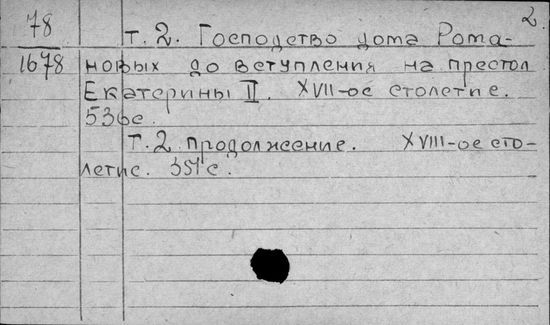 2.
78
1678
т. 2. Господство дома Рома-
новых до вступления на престол
Екатерины II. XVII-ое столетие.
536с.
Т. 2 продолжение. XVIII-ое сто-
летие. 351с.